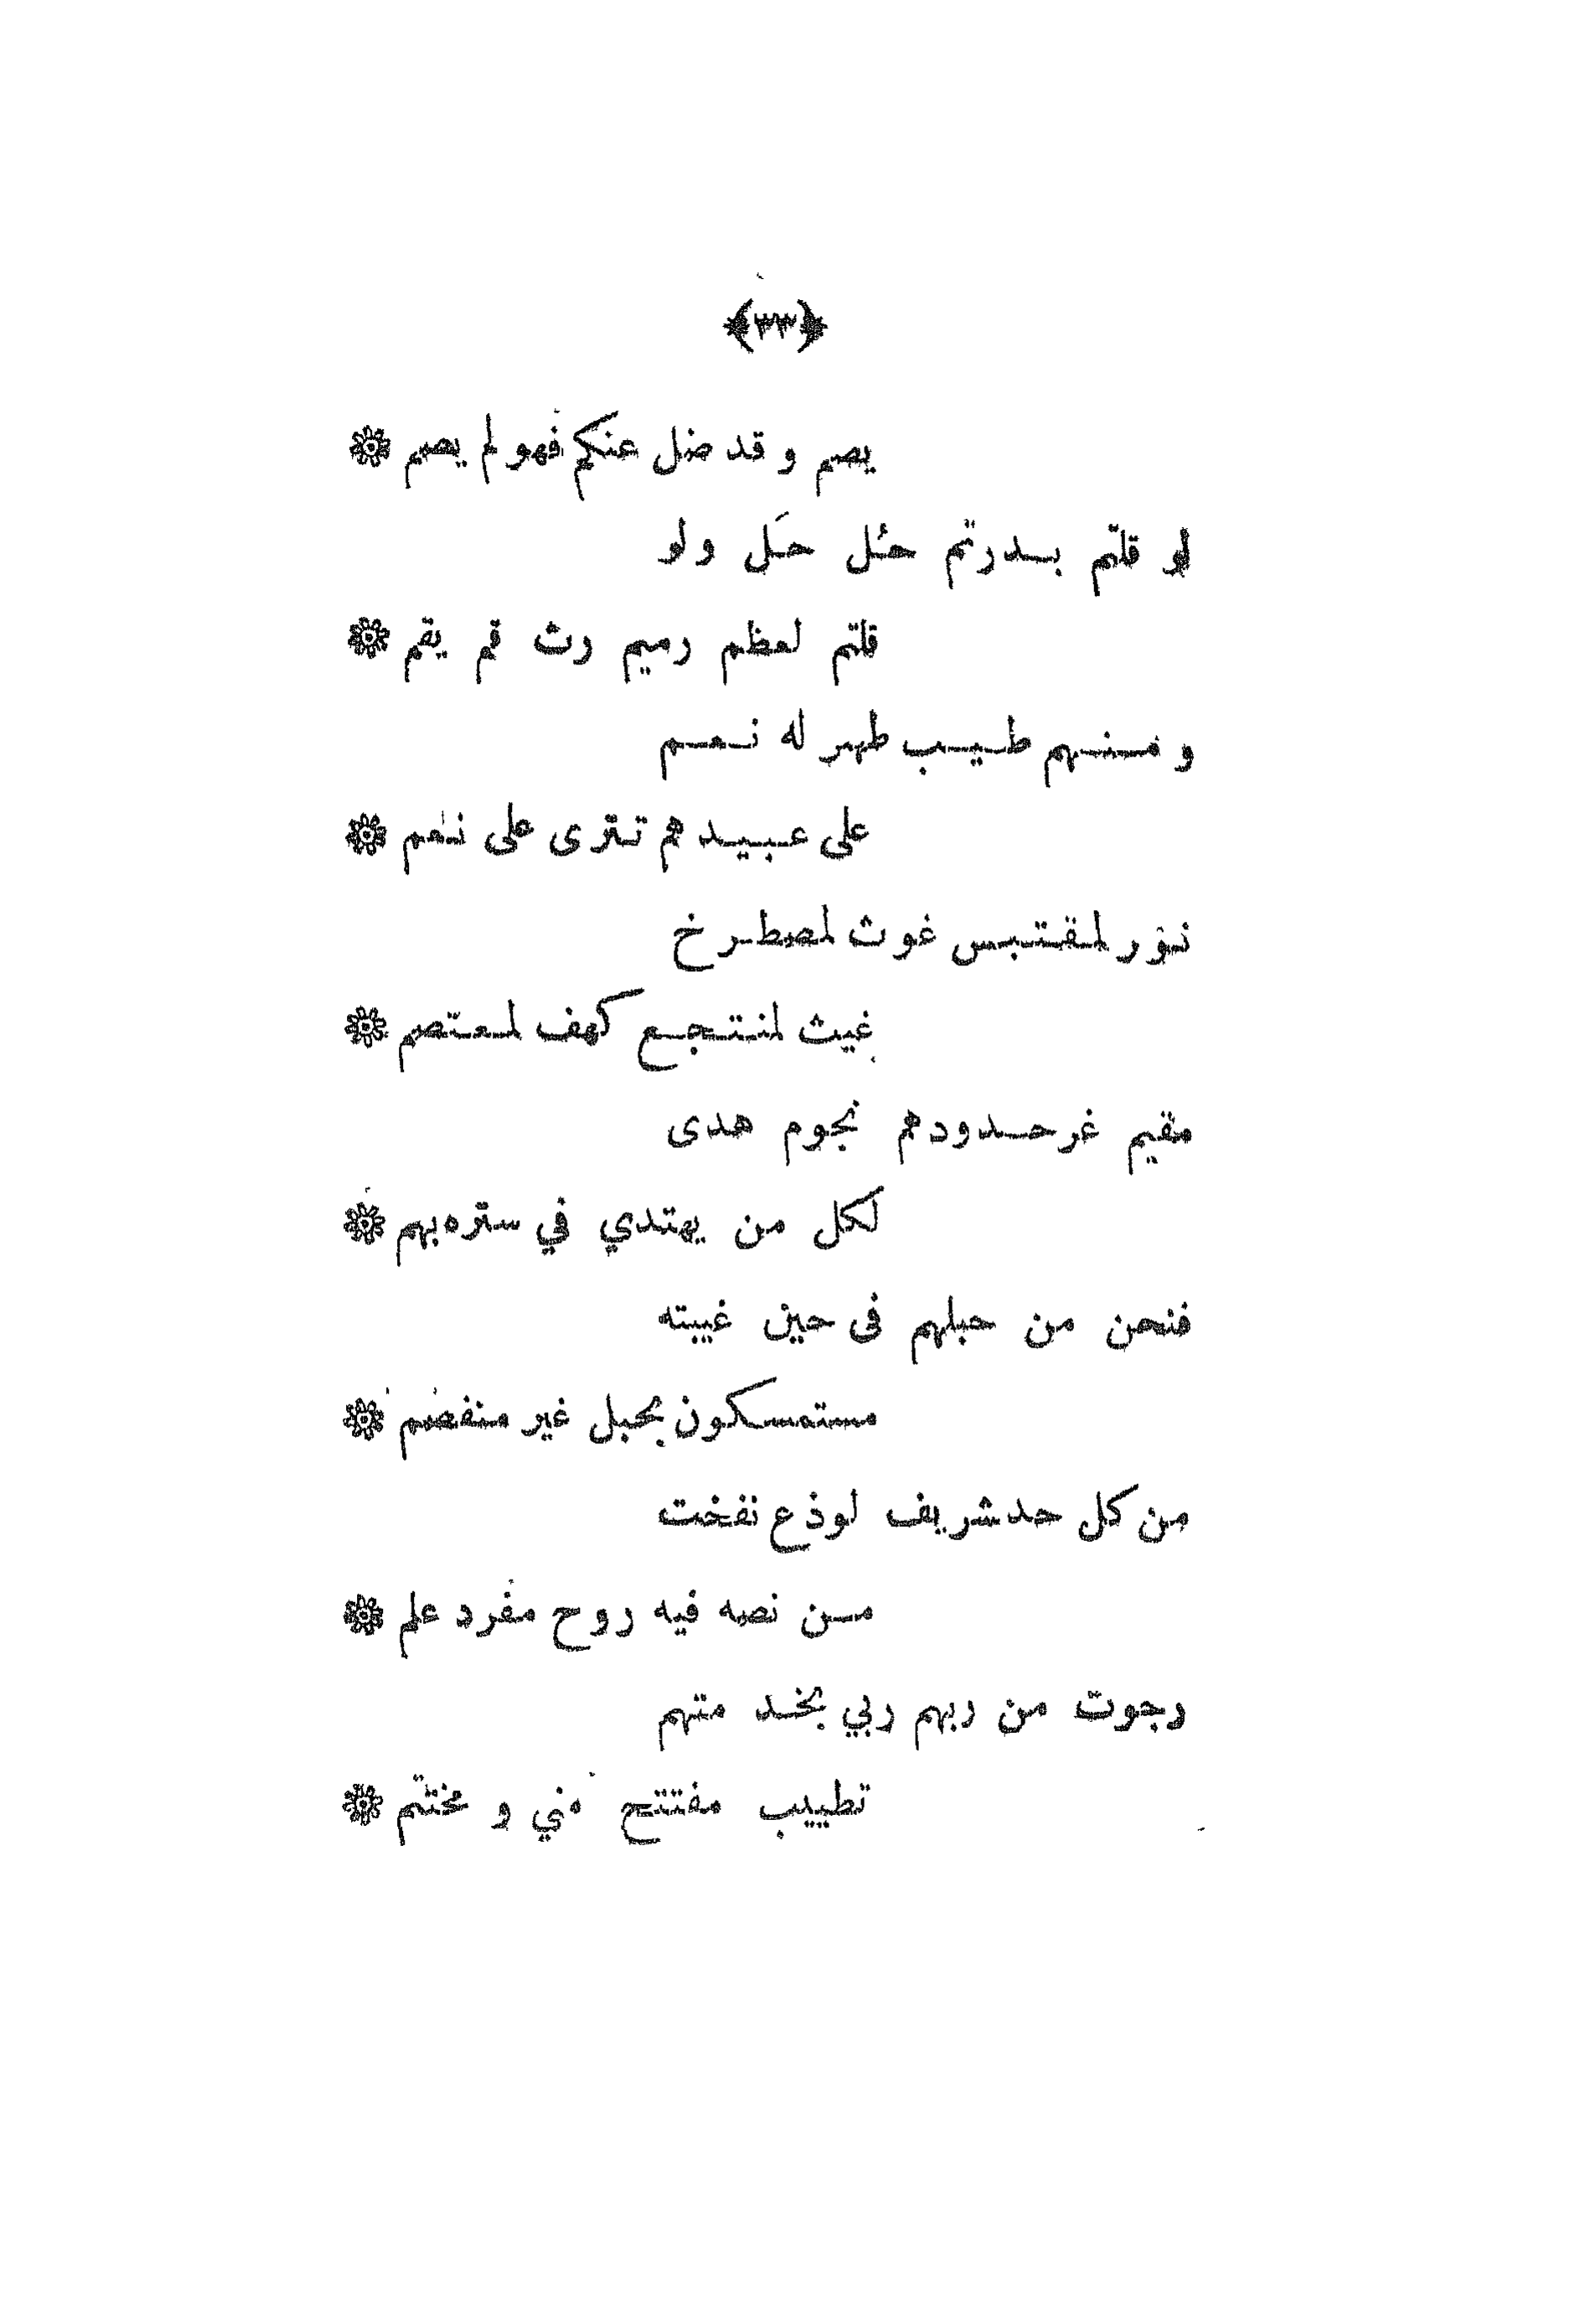 ﴿٣٣﴾
يصم و قد ضل عنكم فهو لم يصم
لو قلتم بدرتم حُل حَل ولو
قلتم لعظم رميم رث قم يقم
و منهم طيب طهر له نعم
على عبيدهم تترى على نعم
نور لمقتبس غوث لمصطرخ
غيث لمنتجع كهف لمعتصم
مقيم غر حدودهم نجوم هدى
لكل من يهتدي في ستره بهم
فنحن من حبلهم فى حين غيبته
مستمسكون بحبل غير منفصم
من كل حد شريف لوذع نفخت
من نصه فيه روح مفرد علم
رجوت من ربهم ربي بخد متهم
تطييب مفتتح مني و مختتم